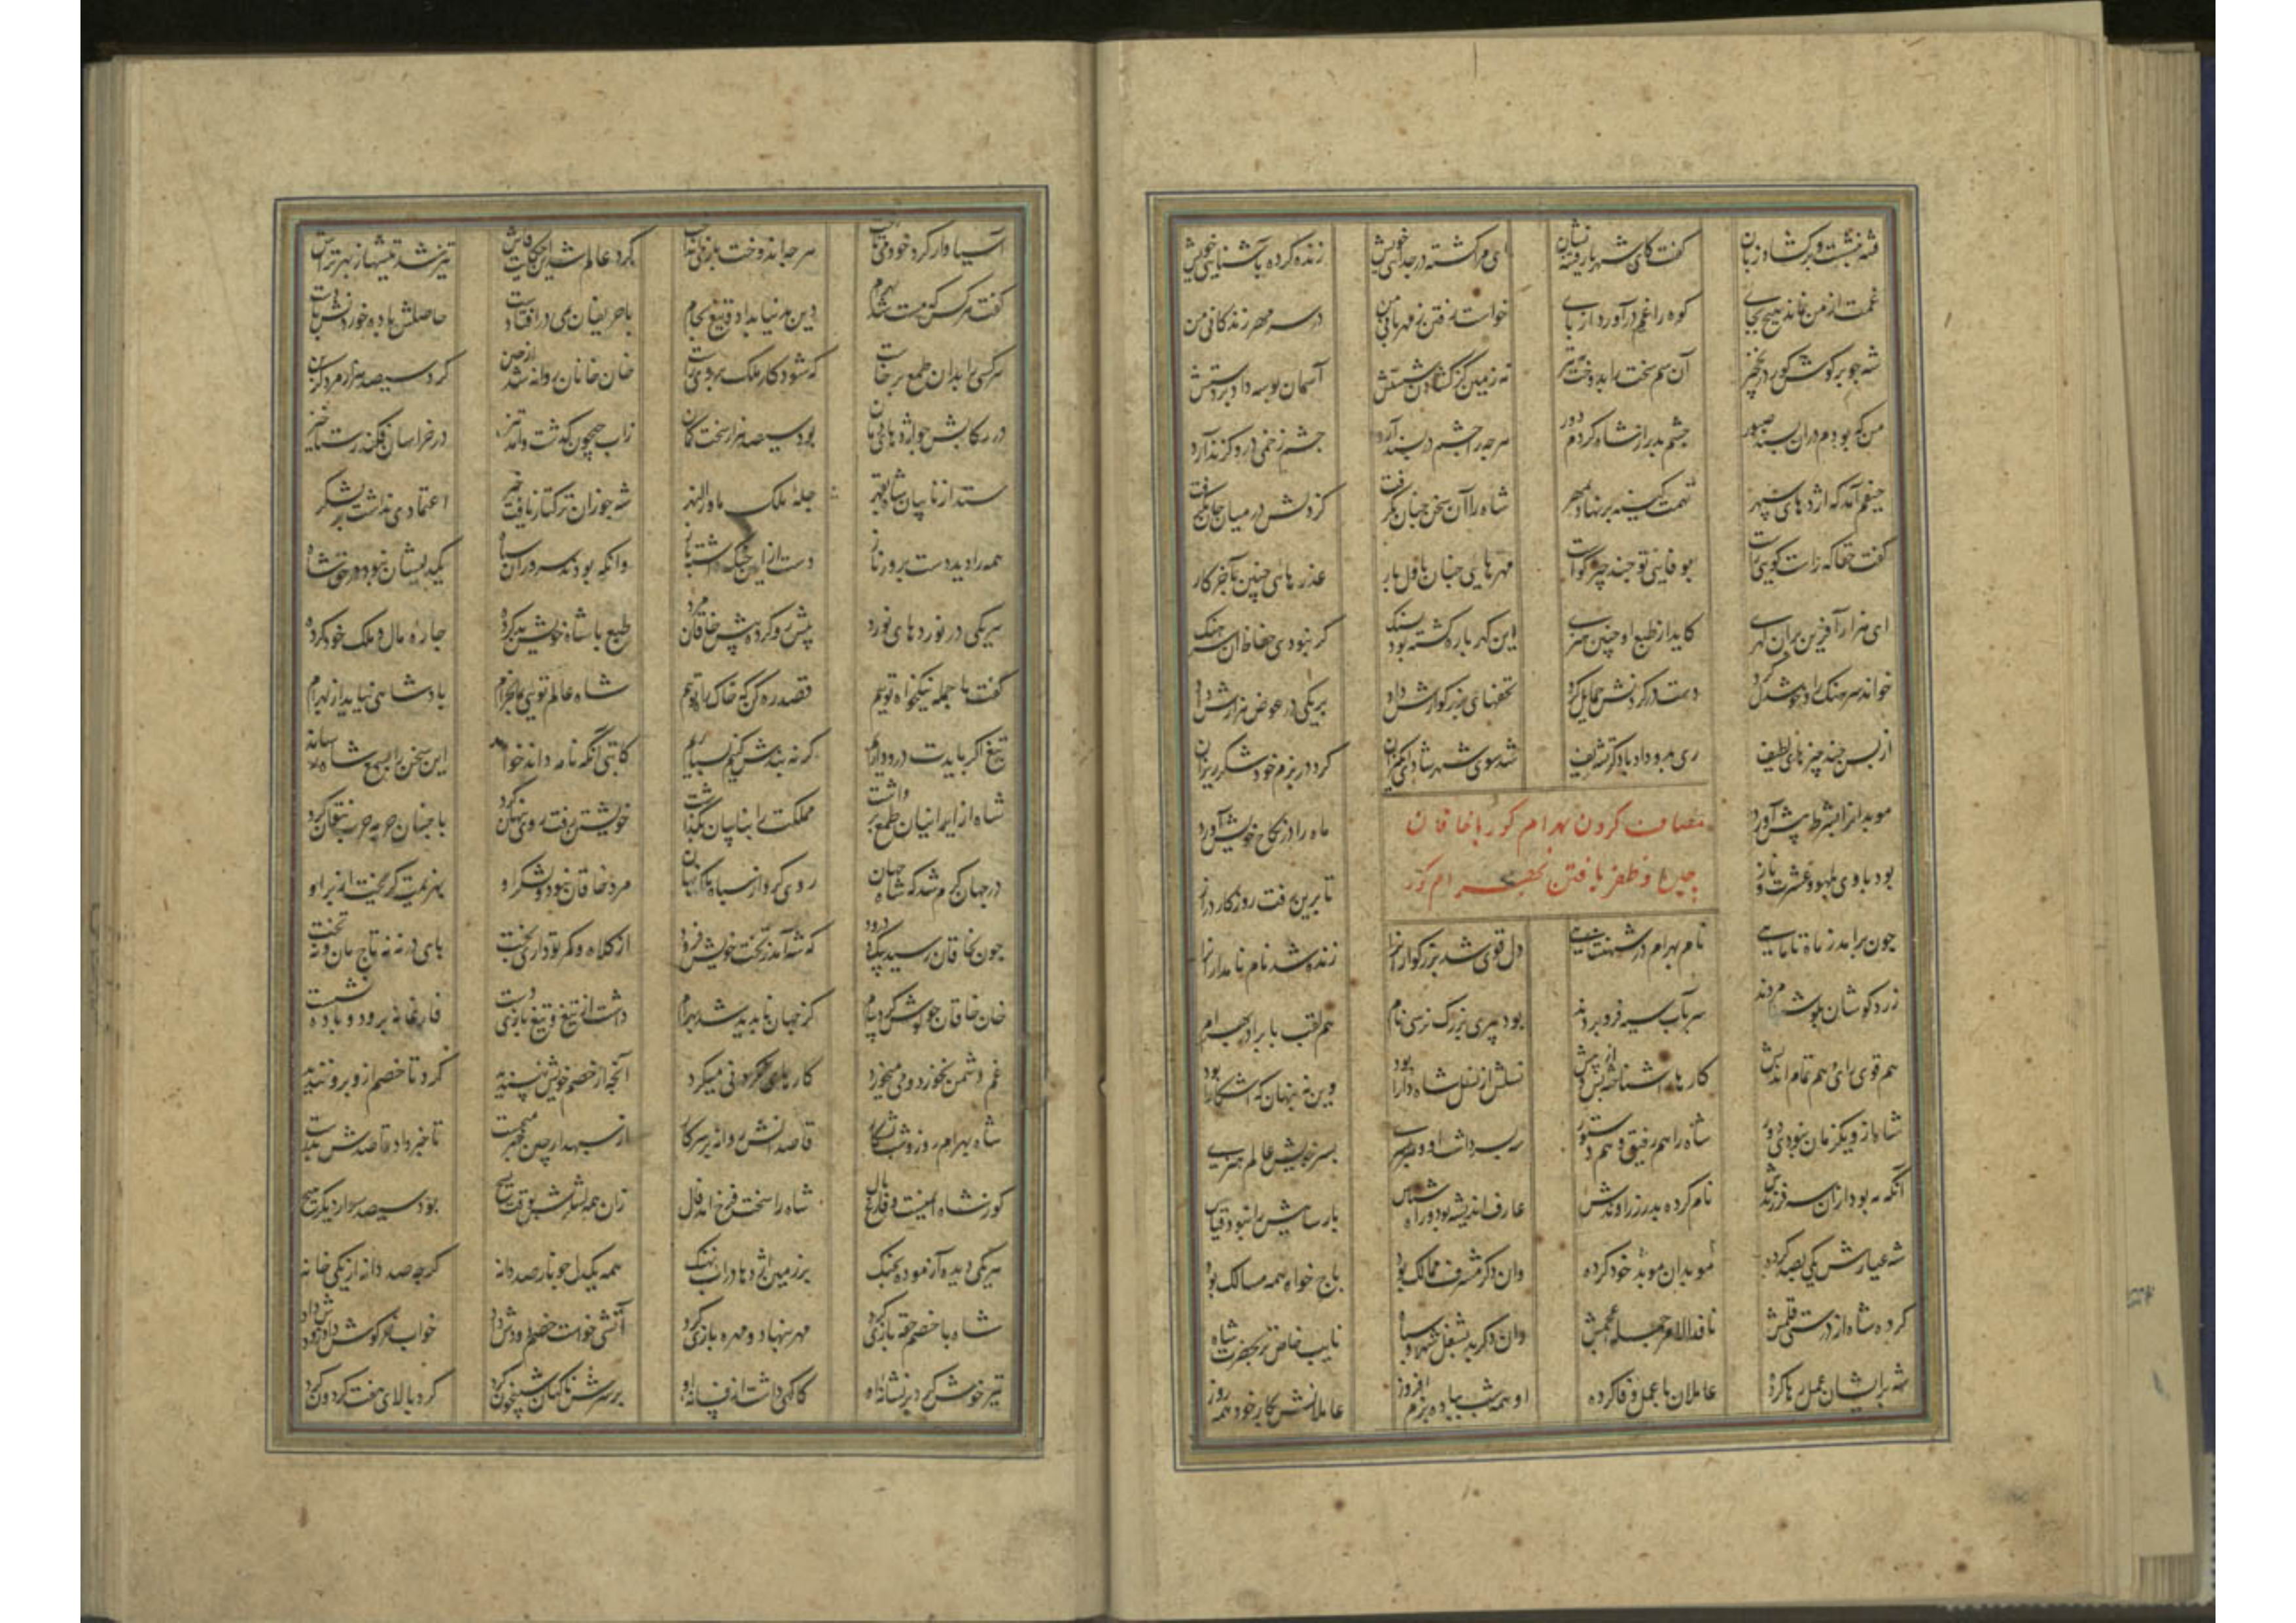 فتنه بنشست و برکشاد زبان کفت کای شهریار فتنه نشان ای مرا کشته در جدایی خویش زنده کرده بآشنایی خویش
غمت از من نماند هیچ بجای کوه را غم درآورد از پای خواست رفتن ز مهربانی من در سر مهر زندکانی من
شه چو بر کوش کور در نخجیر آن سم سخت را بدوخت بتیر نه زمین کز کشادن شستش آسمان بوسه داد بر دستش
من که بودم در آن پسند صبور چشم بد را ز شاه کردم دور هر چه را چشم در پسند آرد چشم زخمی درو کزند آرد
حیفم آمد که اژدهای سپهر تهمت کینه بر نهاد بمهر شاه را آن سخن چنان بکرفت کز دلش در میان جان بکرفت
کفت حقا که راست کویی راست بر وفایی تو چند چیز کواست مهرهای چنان باول بار عذرهای چنین بآخر کار
ای هزار آفرین بران کهری کاید از طبع او چنین هنری این کهر پاره کشته بود بسنک کر نبودی حفاظ این سرهنک
خواند سرهنک را و خوشدل کرد دست در کردنش حمایل کرد تحفهای بزرکوارش داد بر یکی در عوض هزارش داد
از پس چند چیزهای لطیف ری بدو داد کر تشریف شد سوی شهر شادی انکیزان کرد در بزم خود شکرریزان
موبدانرا بشرط پیش آورد ماه را در نکاح خویش آورد
بود با وی بلهو و عشرت و ناز تا برین رفت روزکار دراز
مصاف کردن بهرام کور با خاقان
چین و ظفر یافتن بهرام کور
چون برآمد ز ماه تا ماهی نام بهرام در شهنشاهی دل قوی شد بزرکوارانرا زنده شد نام نامدارانرا
زرد کوشان بکوشها مردند سر بآب سیه فرو بردند بود پیری بزرک نرسی نام هم لقب با برادر بهرام
هم قوی رای و هم تمام اندیش کارها را شناخته پس و پیش نسلش از نسل شاه دارا بود وین نه پنهان که آشکارا بود
شاه ازو یکزمان نبودی دور شاه را هم رفیق و هم دستور سه پسر داشت او و هر پسری بسر خویش عالم هنری
آنکه مه بود ازان سه فرزندش نام کرده پدر زراوندش عارف اندیشه بود و راه شناس پارساییش را نبود قیاس
شه عیارش یکی بصد کرده موبدان موبد خود کرده وان دکر مشرف ممالک بود باج خواه همه مسالک بود
کرده شاه از درستی قلمش نافذ الامر جمله عجمش وان دکر بد بشغل شهر و سپاه نایب خاص تر بحضرت شاه
شه برایشان عمل رها کرده عاملان با عمل وفا کرده او همه شب بباده بزم افروز عاملانش بکار خود همه روز
آسیا وار کرد خود می تاخت هر چه اندوخت باز می انداخت کرد عالم شد این حکایت فاش تیز شد تیشها ز بهر تراش
کفت هر کس که مست شد بهرام دین بدنیا بداد و تیغ بجام با حریفان بمی در افتادست حاصلش باد و خوردنش بادست
هر کسی را بدان طمع برخاست که شود کار ملک بر وی راست خان خانان روانه شد از چین کرد سیصد هزار مرد کزین
در رکابش چو اژدهای دمان بود سیصد هزار سخت کمان زاب جیحون کذشت و آمد تیز در خراسان فکند رستاخیز
ستد از نایبان شاه بقهر جمله ملک ماوراالنهر شه چو زان ترکتاز یافت خبر اعتمادی نداشت بر لشکر
همه را دید دست پرور ناز دست از آیین جنک داشته باز وانکه بودند سروران سپاه یکدلیشان نبود در حق شاه
هر یکی در نوردهای نورد پیش رو کرده پیش خاقان مرد طبع با شاه خویش بد کرده چاره مال و ملک خود کرده
کفت ما جمله نیکخواه توییم قصد ره کن که خاک راه توییم شاه عالم تویی بما بخرام پادشاهی نیاید از بهرام
تیغ اکر بایدت درو داریم کر نه بندش کنیم بسپاریم کاتبی آنکه نامه داند خواند این سخن را بسمع شاه رساند
شاه از ایرانیان طمع برداشت مملکت را بنایبان بکذاشت خویشتن رفت و روی پنهان کرد با چنان حربه حرب نتوان کرد
در جهان کرم شد که شاه جهان روی کرد از سپاه و ملک نهان مرد خاقان نبود و لشکر او بهزیمت کریخت از بر او
چون بخاقان رسید پیک درود که شه آمد ز تخت خویش فرود از کلاه و کمر تو داری بخت پای درنه نه تاج مان و نه تخت
خان خاقان چو کوش کرد پیام کز جهان ناپدید شد بهرام داشت از تیغ و تیغ بازی دست فارغانه برود و باده نشست
غم دشمن نخورد و می میخورد کارهای نکردنی میکرد آنچه از خصم خویش نپسندید کرد تا خصم ازو برو خندید
شاه بهرام روز و شب بشکار قاصدانش روانه بر سر کار از سپهدار چین خبر میجست تا خبر داد قاصدش بدرست
کو ز شاه ایمنست و فارغ بال شاه را سخت فرخ آمد فال زان همه لشکرش بوقت بسیچ بود سیصد سوار دیکر هیچ
هر یکی دیده آزموده بجنک بر زمین اژدها در آب نهنک همه یکدل چو نار صد دانه کرچه صد دانه از یکی خانه
شاه با خصم حقه بازی کرد مهره بنهاد و مهره بازی کرد آتشی خواست خصم دودش داد خواب خرکوش داد و زودش داد
تیر خوش کرد بر نشانه او کاکهی داشت از فسانه او بر سرش ناکهان شبیخون کرد کرد بالای هفت کردون کرد